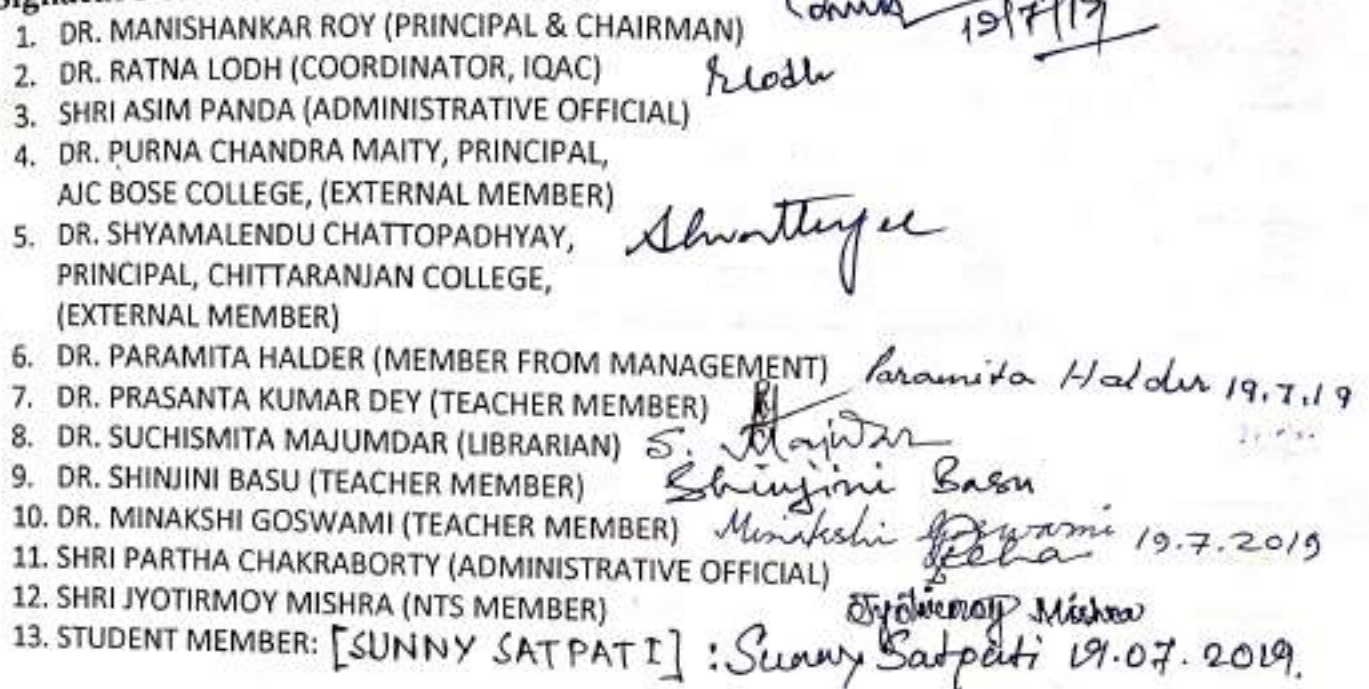 1. DR. MANISHANKAR ROY (PRINCIPAL & CHAIRMAN) 19/7/19
2. DR. RATNA LODH (COORDINATOR, IQAC) RLodh
3. SHRI ASIM PANDA (ADMINISTRATIVE OFFICIAL)
4. DR. PURNA CHANDRA MAITY, PRINCIPAL,
AJC BOSE COLLEGE, (EXTERNAL MEMBER)
5. DR. SHYAMALENDU CHATTOPADHYAY,
PRINCIPAL, CHITTARANJAN COLLEGE,
(EXTERNAL MEMBER)
6. DR. PARAMITA HALDER (MEMBER FROM MANAGEMENT) Paramita Halder 19.7.19
7. DR. PRASANTA KUMAR DEY (TEACHER MEMBER)
8. DR. SUCHISMITA MAJUMDAR (LIBRARIAN) S.
9. DR. SHINJINI BASU (TEACHER MEMBER) Shinjini Basu
10. DR. MINAKSHI GOSWAMI (TEACHER MEMBER) Minakshi Goswami 19.7.2019
11. SHRI PARTHA CHAKRABORTY (ADMINISTRATIVE OFFICIAL)
12. SHRI JYOTIRMOY MISHRA (NTS MEMBER) Jyotirmoy Mishra
13. STUDENT MEMBER: [SUNNY SATPATI] : Sunny Satpati 19.07.2019.